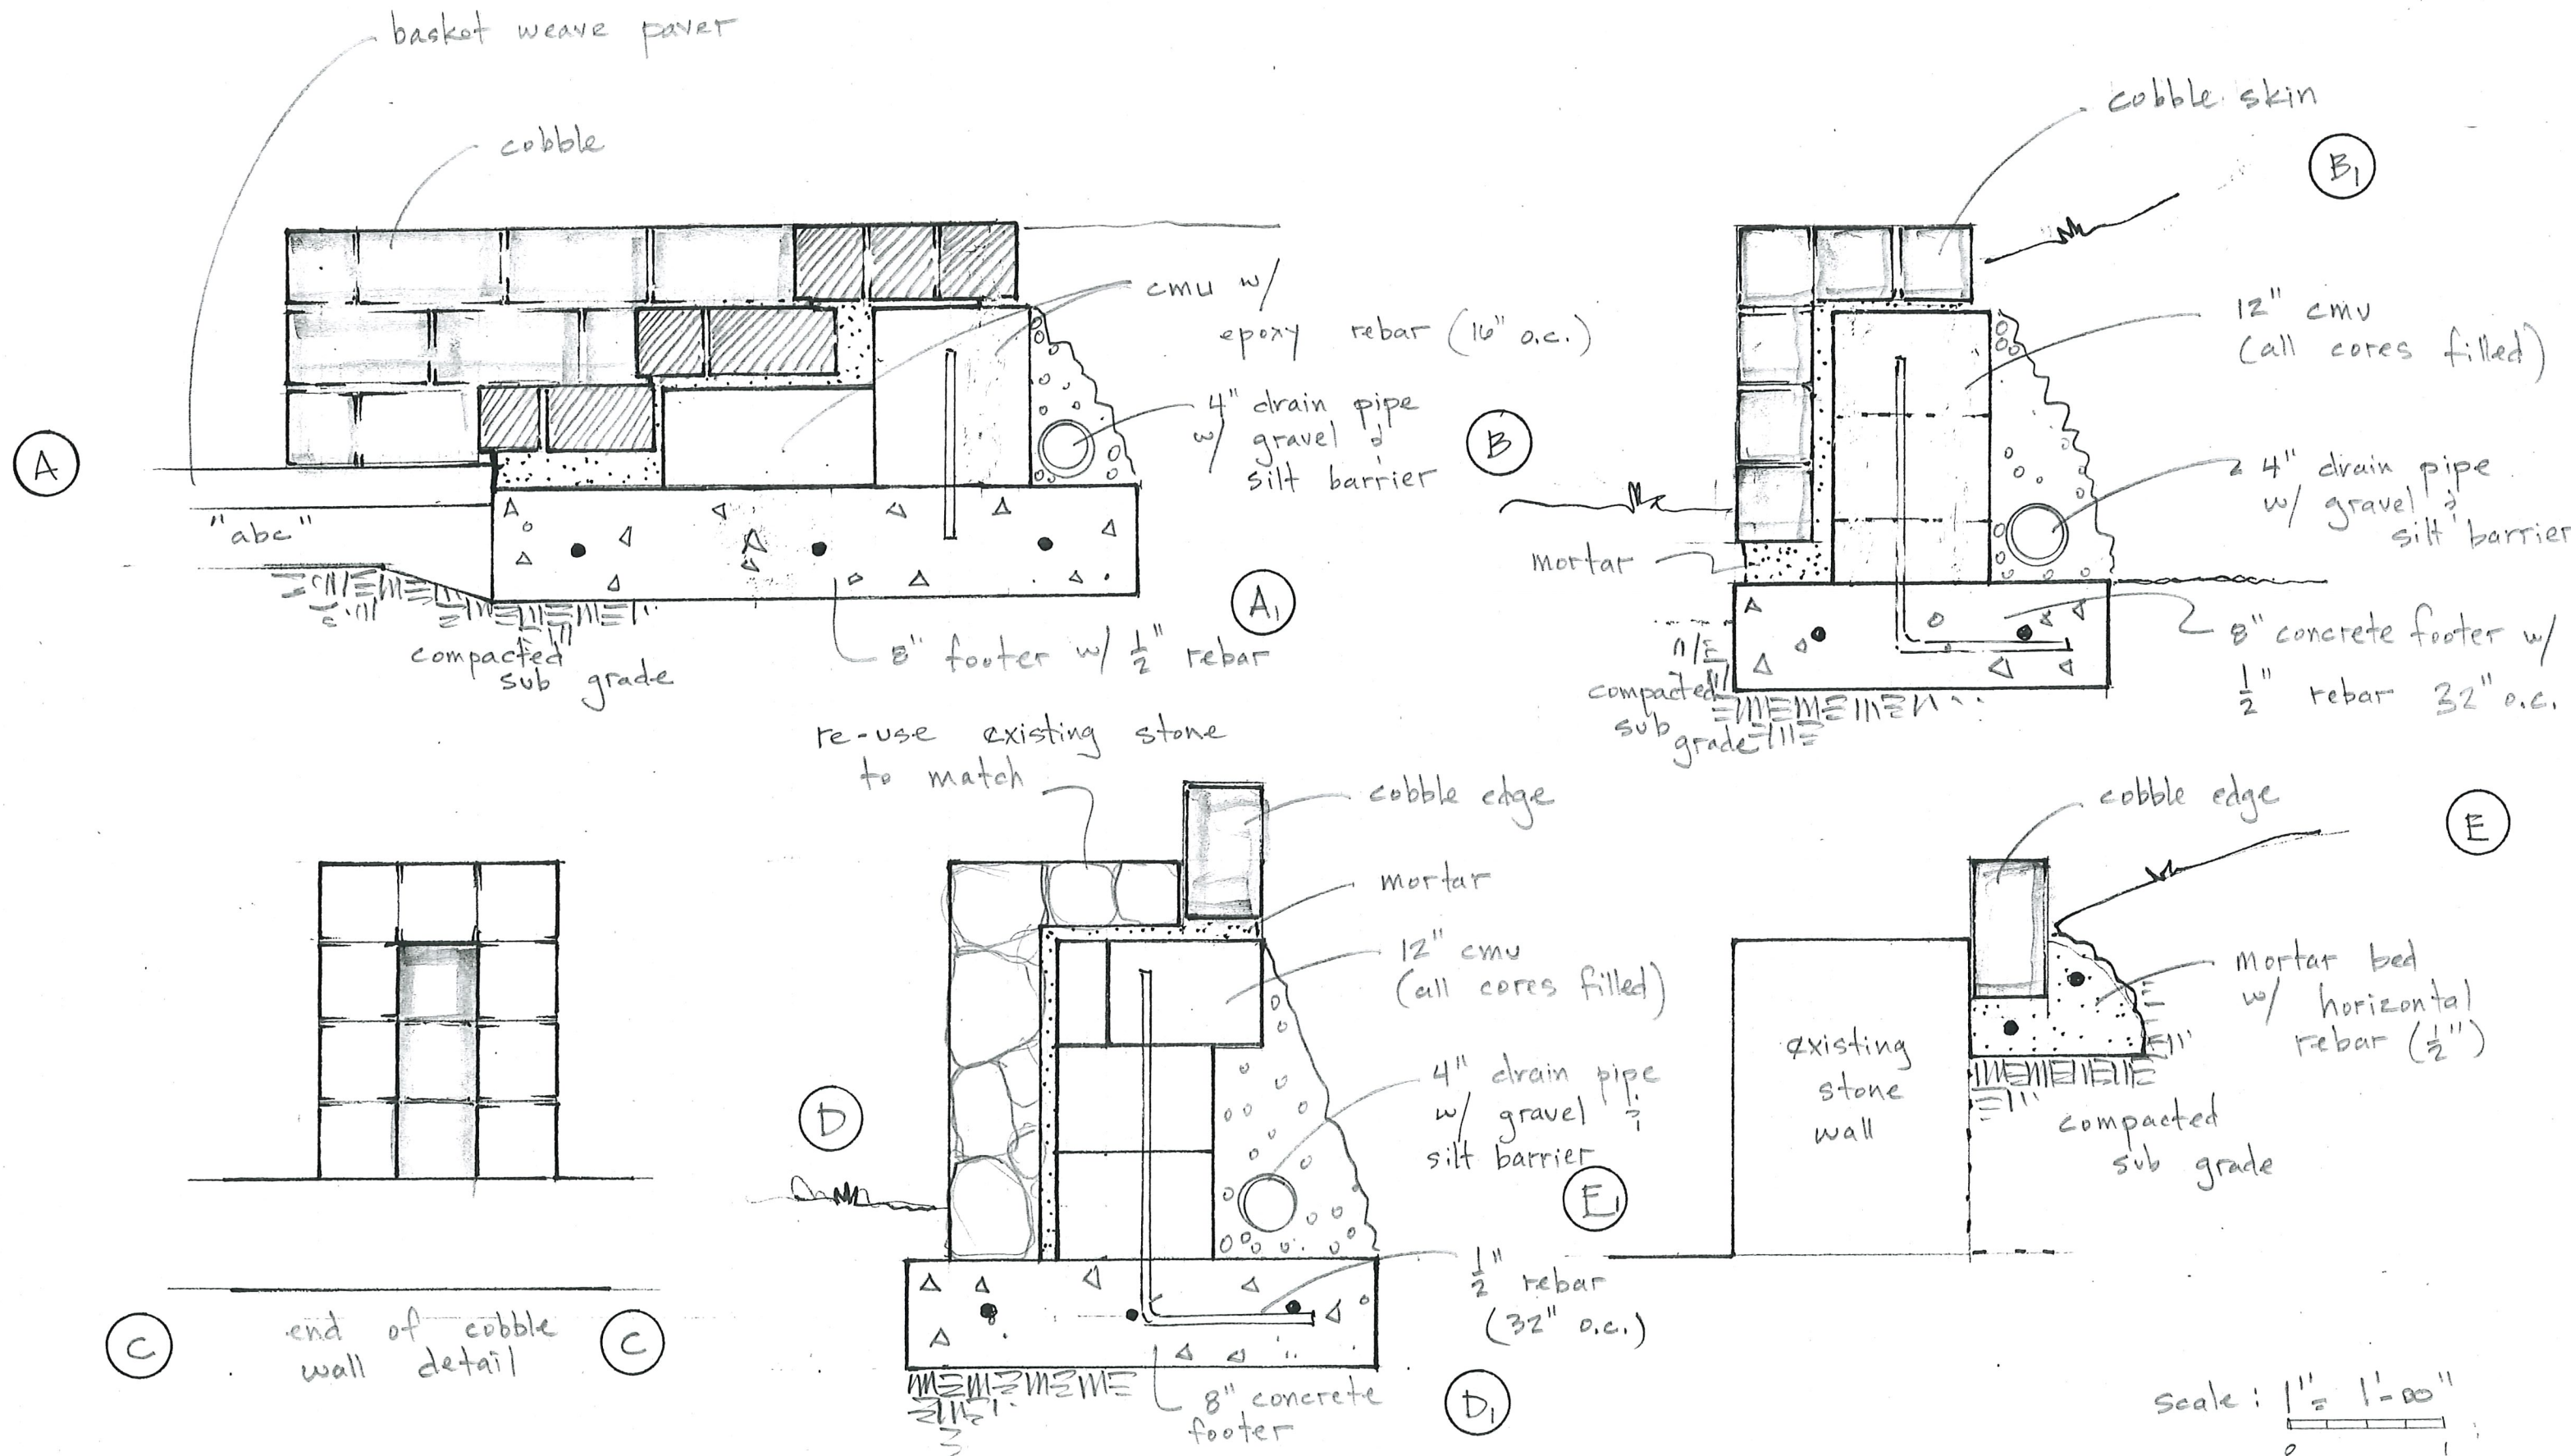 basket weave paver
cobble
cmu w/
epoxy rebar (16" o.c.)
4" drain pipe
w/ gravel &
silt barrier
A
"abc"
compacted
sub grade
8" footer w/ 1/2" rebar
A1
cobble skin
B1
12" cmu
(all cores filled)
B
4" drain pipe
w/ gravel &
silt barrier
mortar
compacted
sub
grade
8" concrete footer w/
1/2" rebar 32" o.c.
C
end of cobble
wall detail
C
re-use existing stone
to match
cobble edge
mortar
12" cmu
(all cores filled)
4" drain pipe
w/ gravel &
silt barrier
D
1/2" rebar
(32" o.c.)
8" concrete
footer
D1
cobble edge
E
mortar bed
w/ horizontal
rebar (1/2")
existing
stone
wall
compacted
sub grade
E1
scale: 1" = 1'-00"
0 1